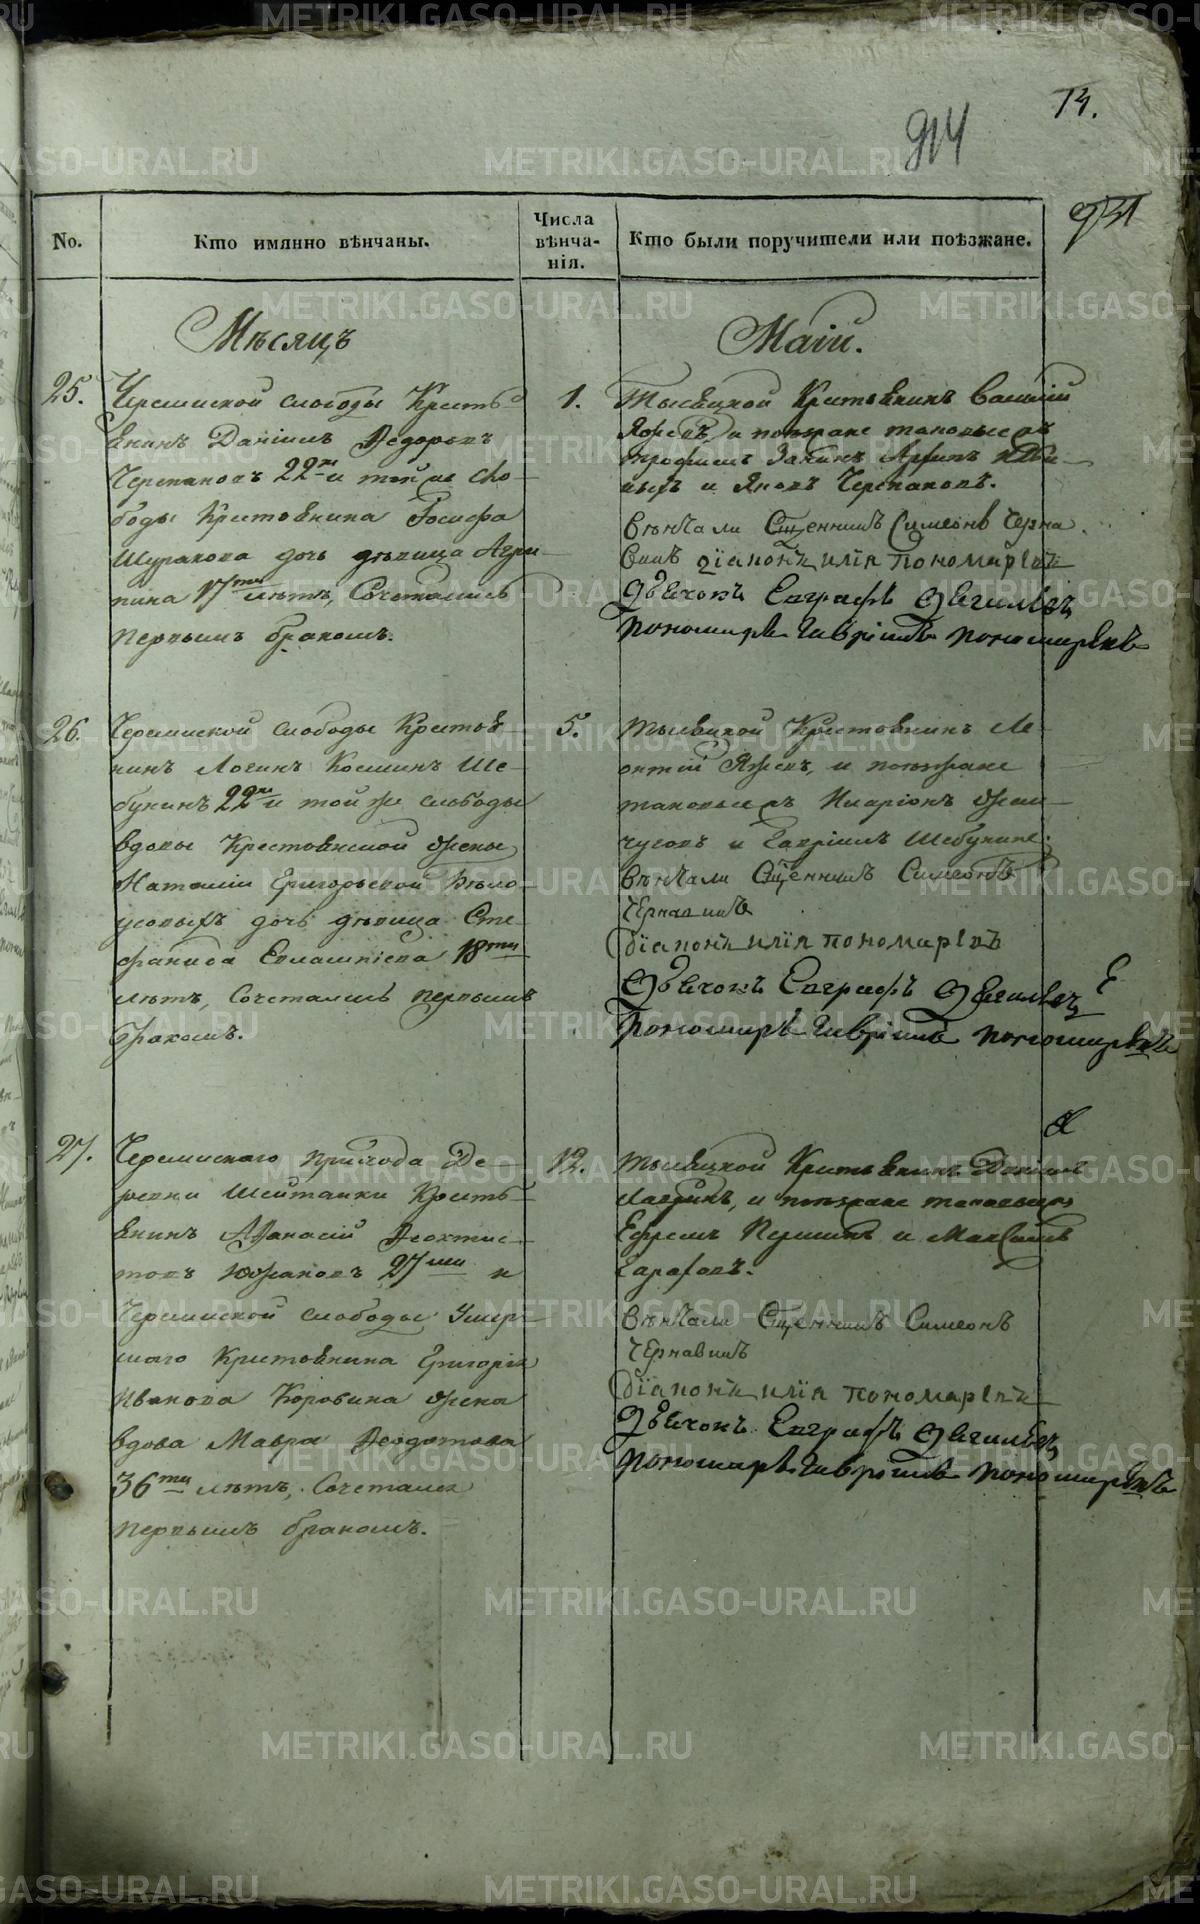 14.
914
931
No.
Кто имянно вѣнчаны.
Числа вѣнча-нія.
Кто были поручители или поѣзжане.
Мѣсяцъ
Маіи.
25.
Череминской слободы Кресть-
янинъ Даніилъ Ѳедоровъ
Черепановъ 22хъ и той же сло-
боды Крестьянина Іосифа
Шуракова дочь дѣвица Агри-
пина 17ти лѣтъ, Сочетались
первымъ бракомъ.
1.
Крестьянинъ Василій
и поѣзжане таковые жъ
Трофимъ
и Яковъ Черепановъ.
вѣнчали Сщенникъ Симеонъ Черна
винъ діаконъ илія пономаревъ
Дьячокъ Евграфъ
пономарь гавріилъ пономаревъ
26.
Череминской слободы Крестья-
нинъ Логинъ Косминъ Ше-
букинъ 22хъ и той же слободы
вдовы Крестьянской жены
Наталіи Григорьевой Бѣло-
усовыхъ дочь дѣвица Сте-
фанида Евлампіева 18ти
лѣтъ, Сочетались первымъ
бракомъ.
5.
Крестьянинъ Ле-
онтій и поѣзжане
таковые жъ Иларіонъ Жем-
чуговъ и Гавріилъ Шебукине.
вѣнчали Сщенникъ Симеонъ
Чернавинъ
діаконъ илія пономаревъ
Дьячокъ Евграфъ
Пономарь гавріилъ пономаревъ
27.
Череминскаго прихода Де-
ревни Шайтанки Кресть-
янинъ Аѳанасій Ѳеоктис-
товъ Южаковъ 27ми и
Череминской слободы Умер-
шаго Крестьянина Григорія
Иванова Коровина жена
вдова Мавра Ѳедотова
36ти лѣтъ, Сочетались
первымъ бракомъ.
12.
Крестьянинъ Даніилъ
и поѣзжане таковые жъ
Ефремъ Першинъ и Максимъ
вѣнчали Сщенникъ Симеонъ
Чернавинъ
діаконъ илія пономаревъ
Дьячокъ Евграфъ
пономарь гавріилъ пономаревъ
METRIKI.GASO-URAL.RU